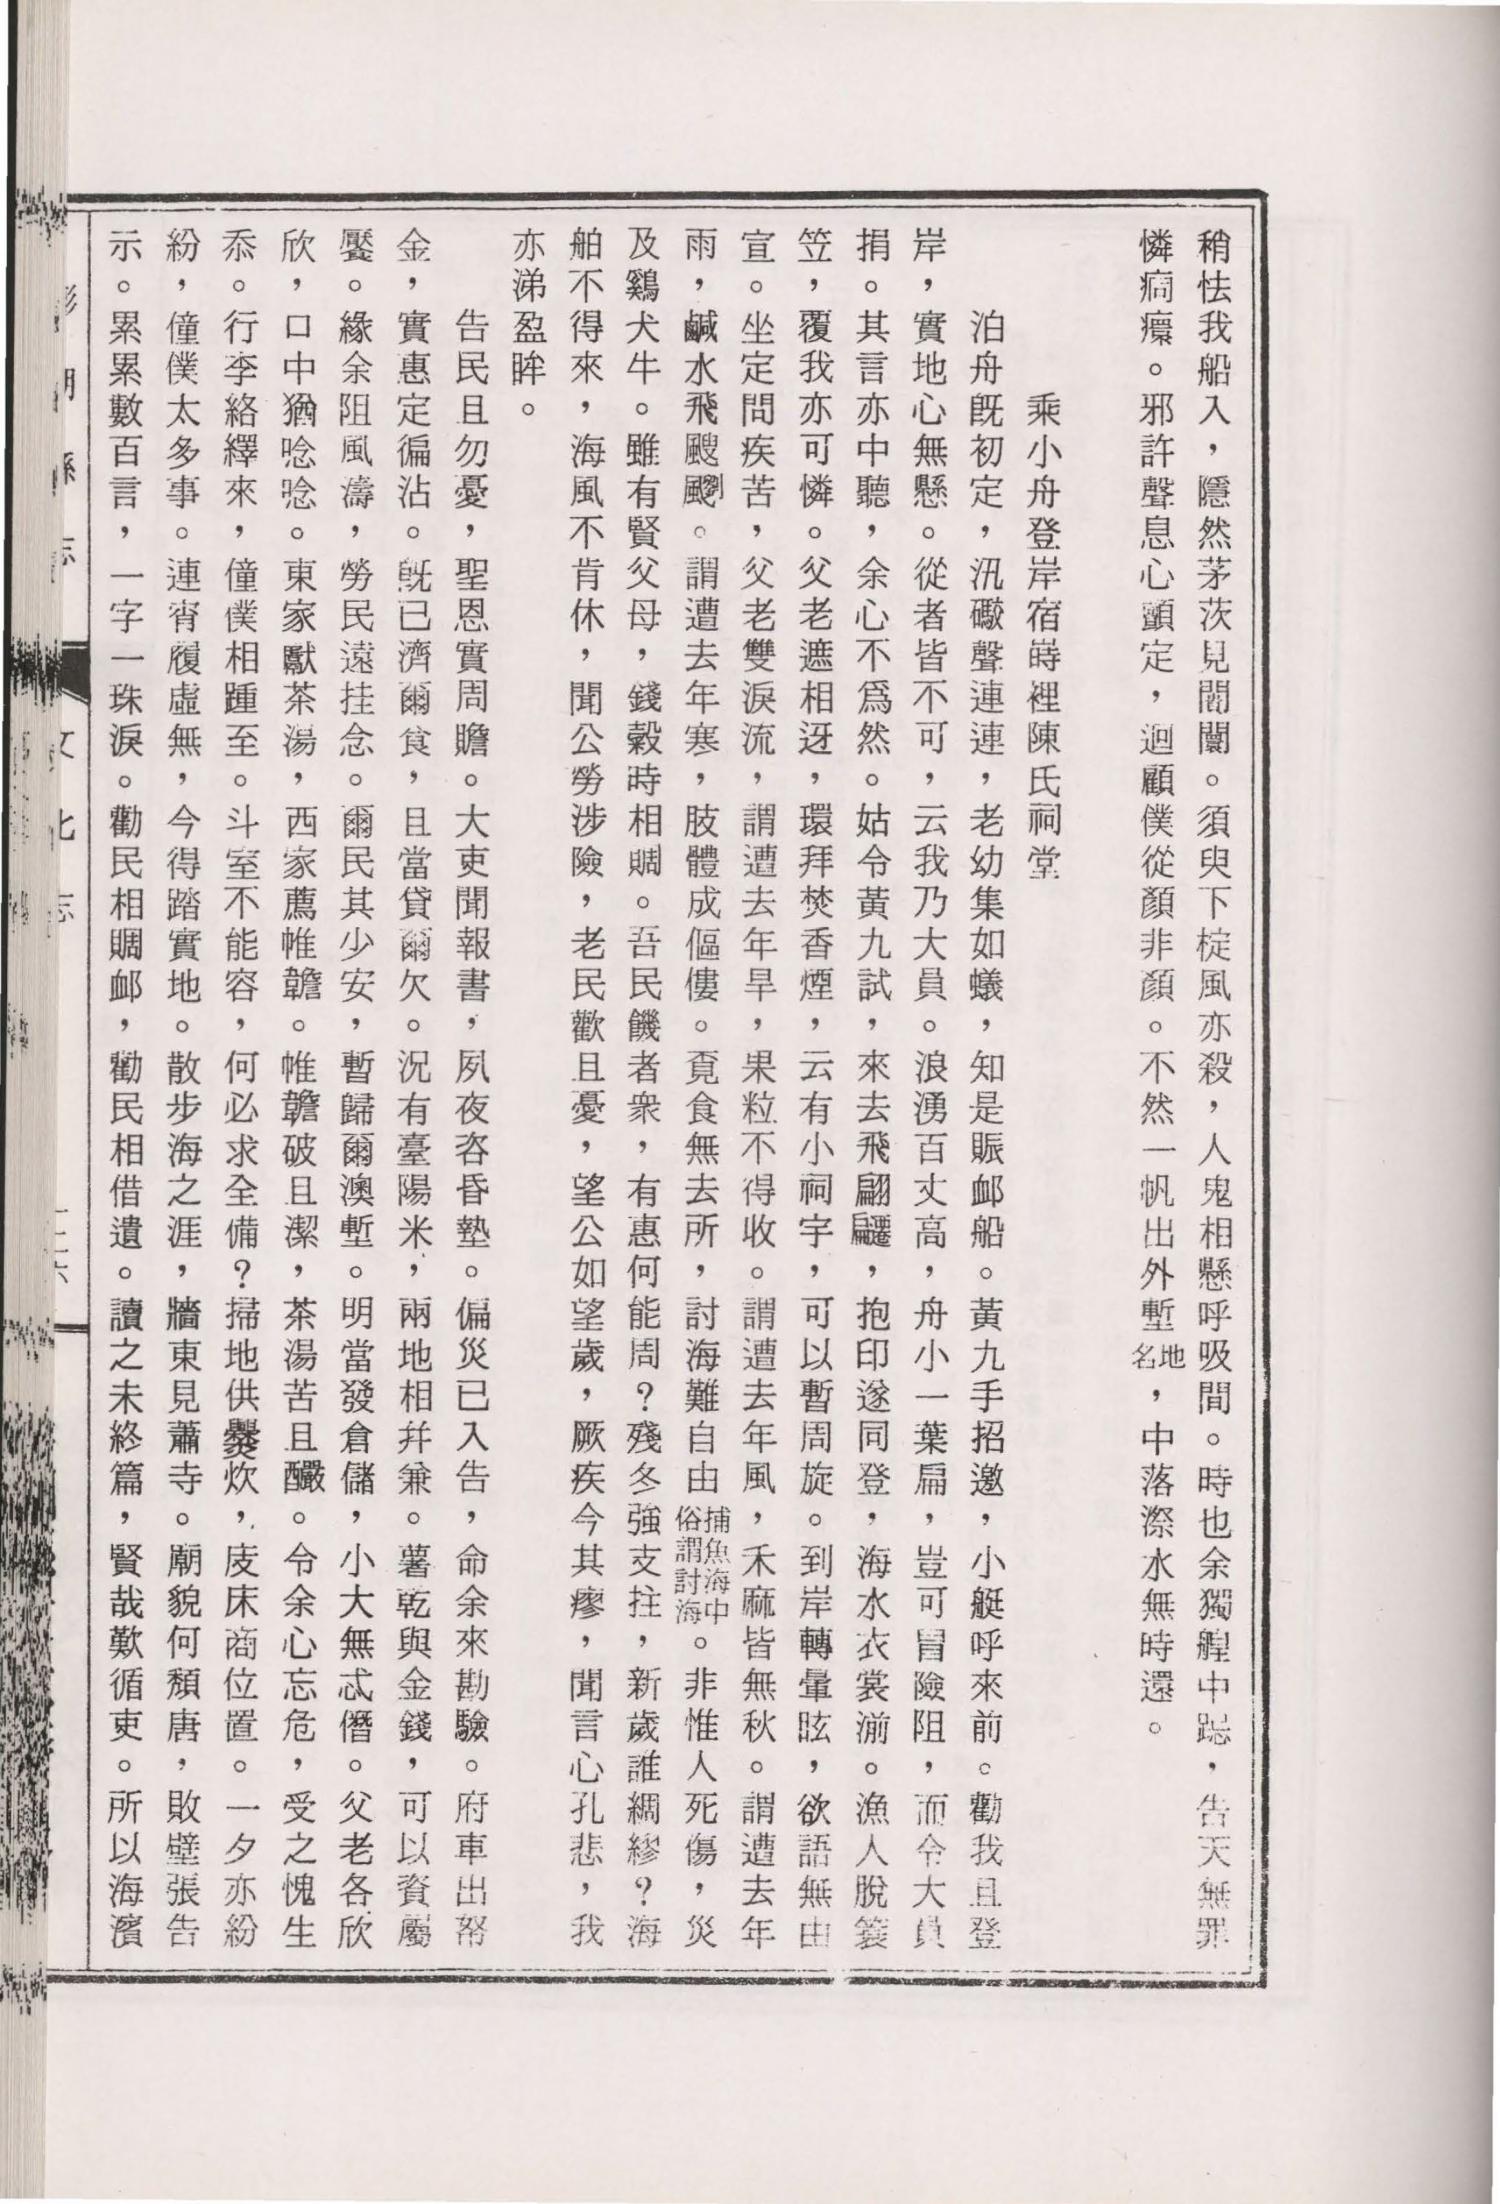 稍怯我船入，隱然茅茨見闍闉。須臾下椗風亦殺，人鬼相懸呼吸間。時也余獨艎中跽，告天無罪
憐痌癏。邪許聲息心顫定，迴顧僕從顏非顏。不然一帆出外塹地名，中落漈水無時還。
乘小舟登岸宿嵵裡陳氏祠堂
泊舟旣初定，汛礮聲連連，老幼集如蟻，知是賑卹船。黃九手招邀，小艇呼來前。勸我且登
岸，實地心無懸。從者皆不可，云我乃大員。浪湧百丈高，舟小一葉扁，豈可冒險阻，而令大員
捐。其言亦中聽，余心不爲然。姑令黃九試，來去飛翩躚，抱印遂同登，海水衣裳湔。漁人脫簑
笠，覆我亦可憐。父老遮相迓，環拜焚香煙，云有小祠宇，可以暫周旋。到岸轉暈眩，欲語無由
宣。坐定問疾苦，父老雙淚流，謂遭去年旱，果粒不得收。謂遭去年風，禾麻皆無秋。謂遭去年
雨，鹹水飛颼飀。謂遭去年寒，肢體成傴僂。覓食無去所，討海難自由捕魚海中俗謂討海。非惟人死傷，災
及鷄犬牛。雖有賢父母，錢穀時相賙。吾民饑者衆，有惠何能周？殘冬強支拄，新歲誰綢繆？海
舶不得來，海風不肯休，聞公勞涉險，老民歡且憂，望公如望歲，厥疾今其瘳，聞言心孔悲，我
亦涕盈眸。
告民且勿憂，聖恩實周贍。大吏聞報書，夙夜咨昏墊。偏災已入告，命余來勘驗。府車出帑
金，實惠定徧沾。旣已濟爾食，且當貸爾欠。況有臺陽米，兩地相幷兼。薯乾與金錢，可以資屬
饜。緣余阻風濤，勞民遠挂念。爾民其少安，暫歸爾澳塹。明當發倉儲，小大無忒僭。父老各欣
欣，口中猶唸唸。東家獻茶湯，西家薦帷韂。帷韂破且潔，茶湯苦且釅。令余心忘危，受之愧生
忝。行李絡繹來，僮僕相踵至。斗室不能容，何必求全備？掃地供爨炊，庋床商位置。一夕亦紛
紛，僮僕太多事。連宵履虛無，今得踏實地。散步海之涯，牆東見蕭寺。廟貌何頹唐，敗壁張告
示。累累數百言，一字一珠淚。勸民相賙卹，勸民相借遺。讀之未終篇，賢哉歎循吏。所以海濱
文化志